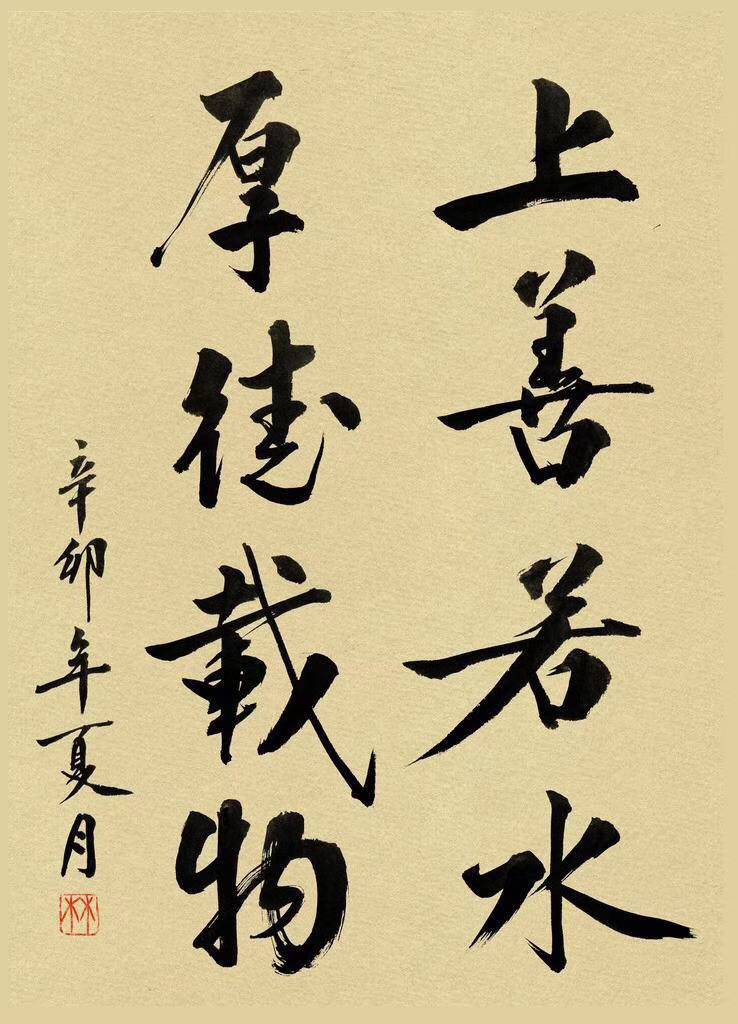 上善若水
厚德載物
辛卯年夏月
林